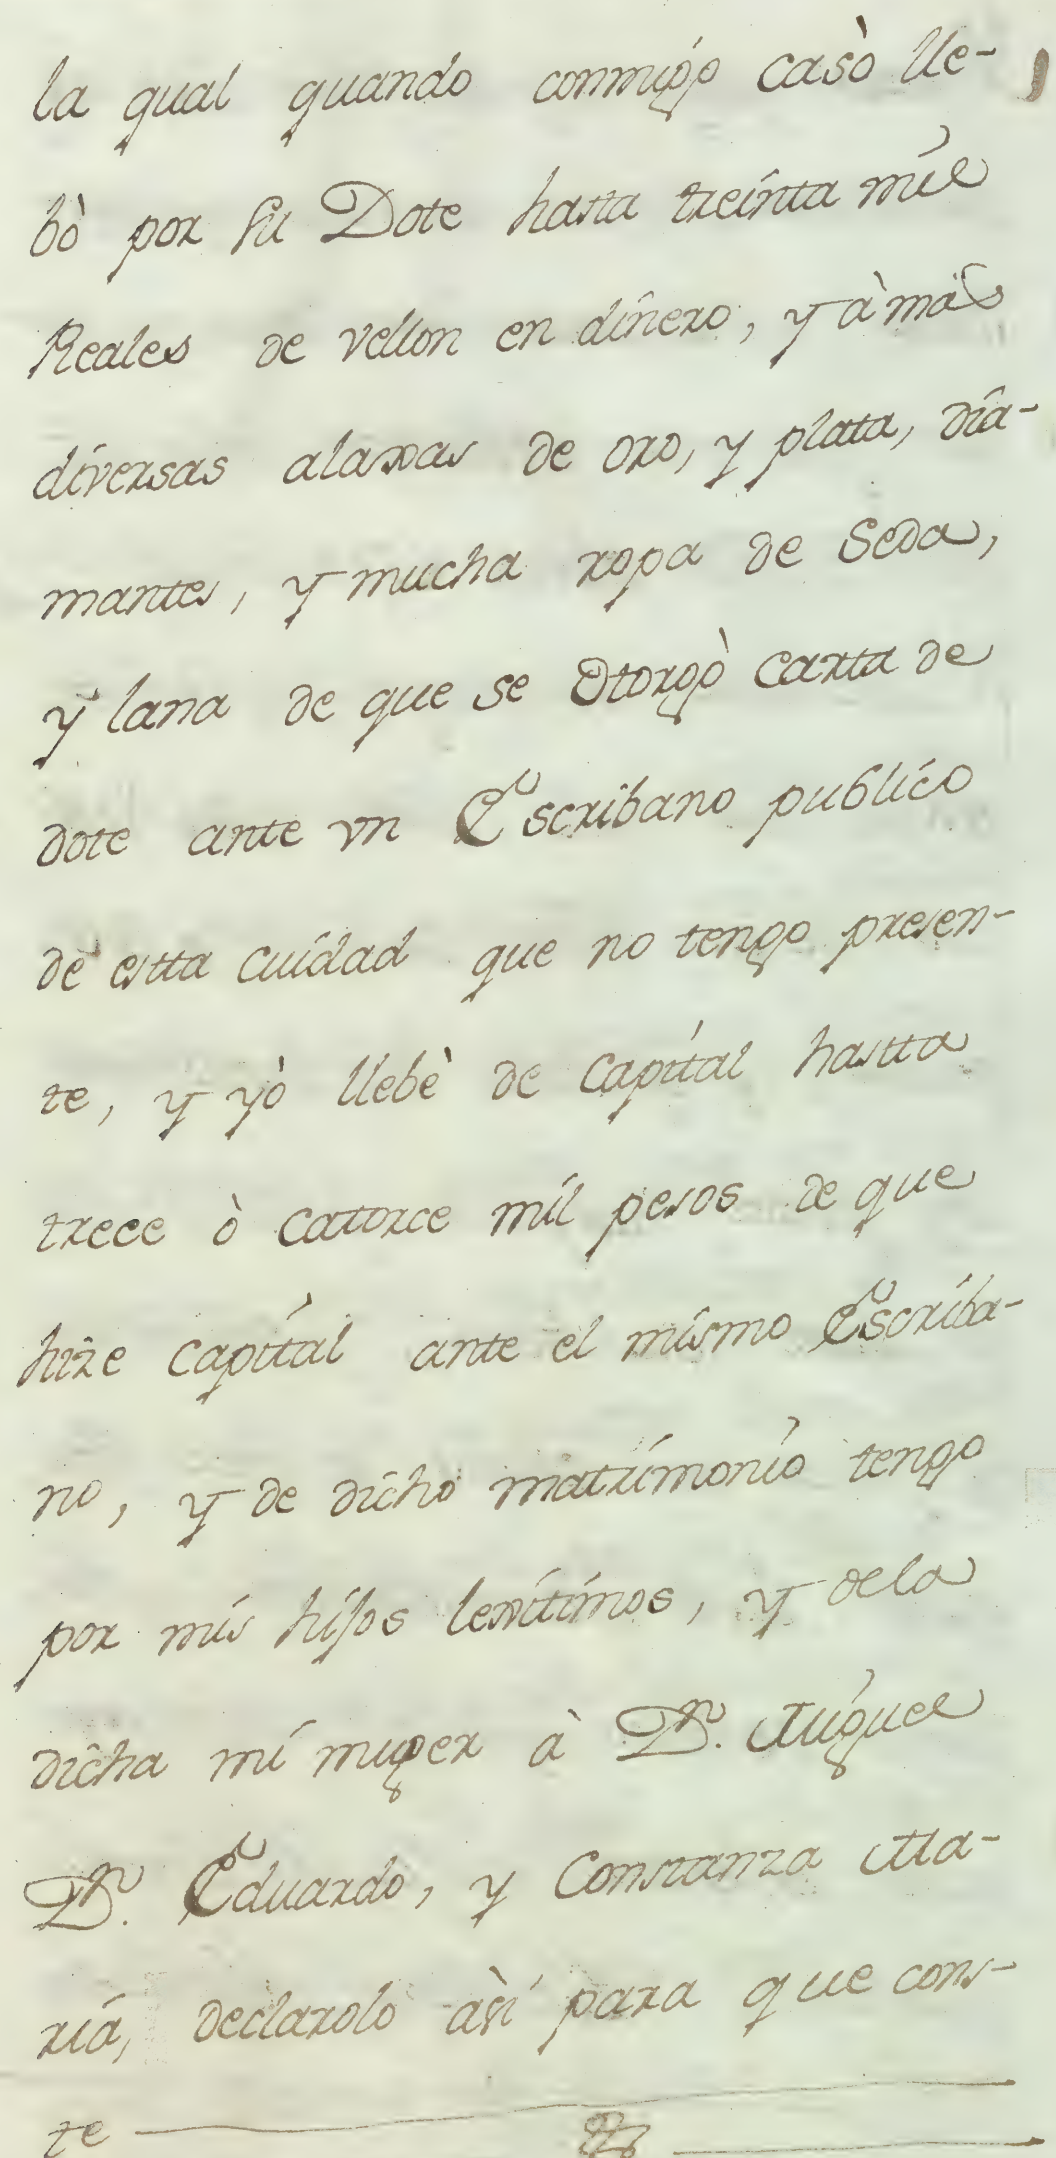 la qual quando conmigo casò lle-
bò por su Dote hasta treinta mil
Reales de vellon en dinero, y à màs
diversas alaxas de oro, y plata, dia-
mantes, y mucha ropa de Seda,
y lana de que se Otorgò carta de
dote ante vn Escribano publico
de estta cuidad que no tengo presen-
te, y yò llebè de Capital hastta
trece ò catorce mil pesos de que
hize capital ante el mismo Escriba-
no, y de dicho matrimonio tengo
por mis hijos lexitimos, y dela
dicha mi muger à Dn. Miguel
Dn. Eduardo, y Constanza Ma-
ria, declarolo àsi para que cons-
te